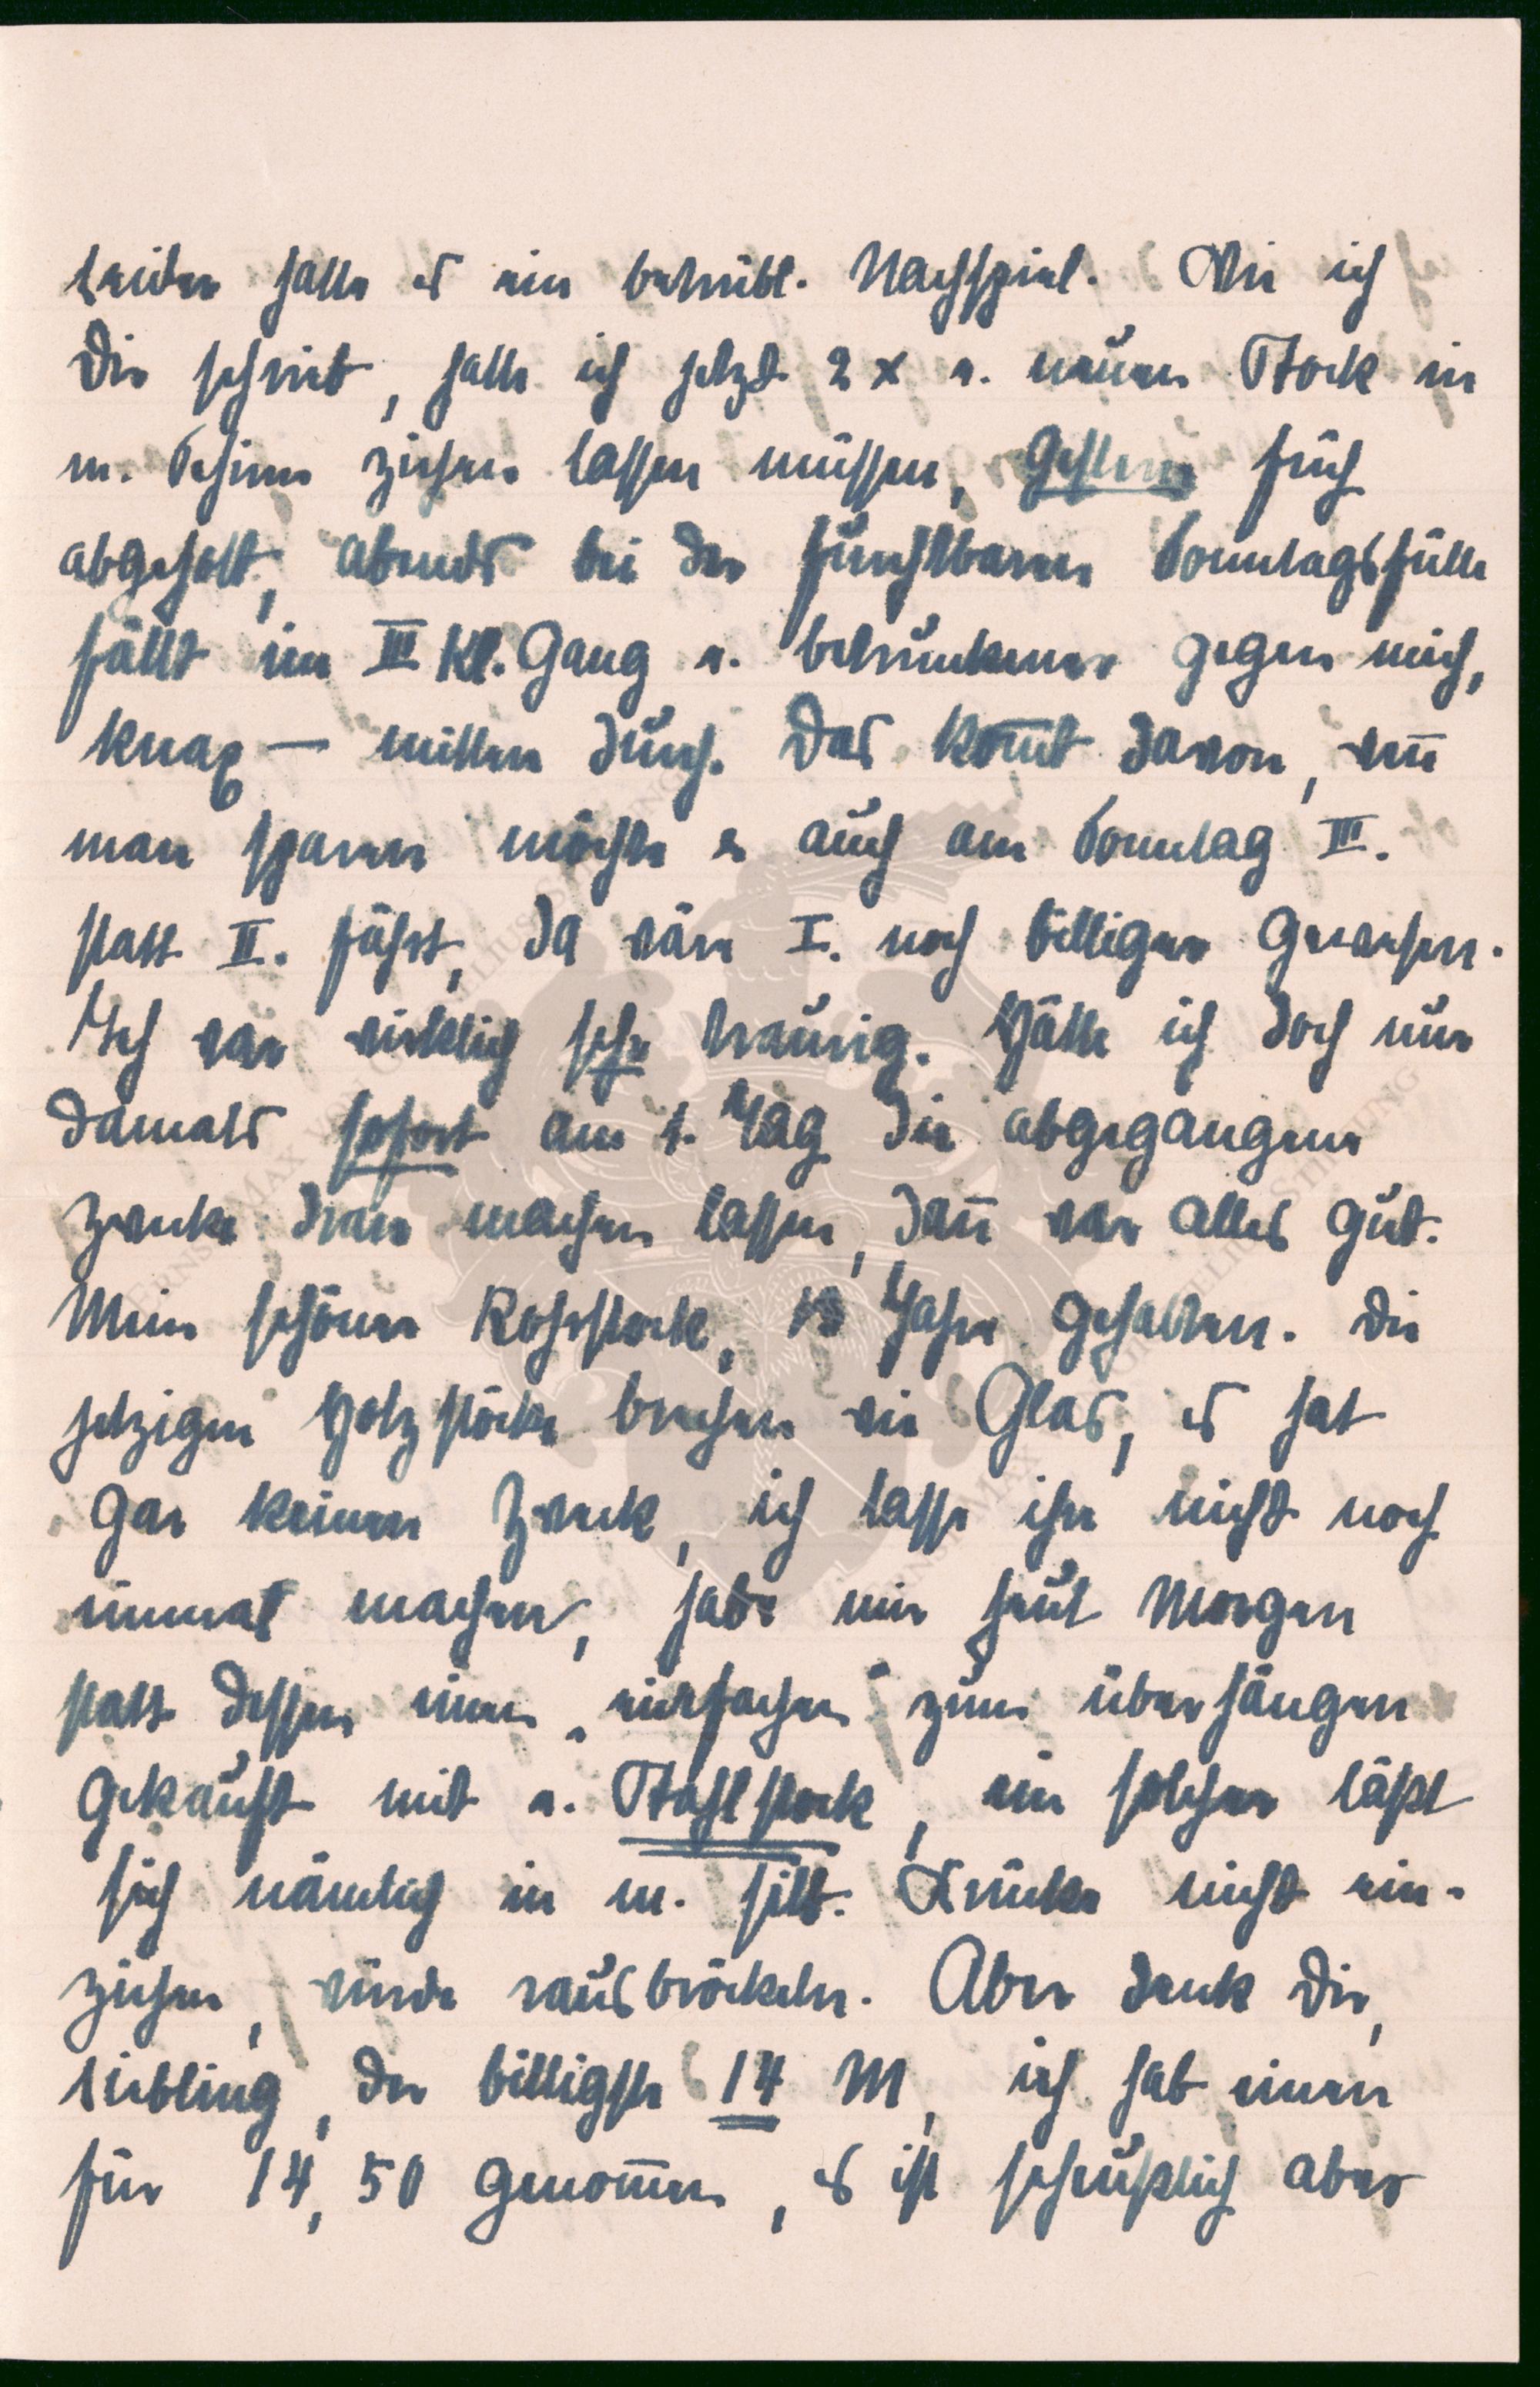 Leider hatte es ein betrübl. Nachspiel. Wie ich
Dir schrieb, hatte ich jetzt 2 x e. neuen Stock in
m. Schirm ziehen lassen müssen, gestern früh
abgeholt, abends bei der furchtbaren Sonntagsfülle
fällt im III Kl. Gang e. Betrunkener gegen mich,
knax — mitten durch. Das kom̄t davon, wen̄
man sparen möchte & auch am Sonntag III.
statt II. fährt, da wäre I. noch billiger gewesen.
Ich war wirklich sehr traurig. Hätte ich doch nur
damals sofort am 1. Tag die abgegangene
Zwecke dran machen lassen, dan̄ war alles gut.
Mein schöner Rohrstock, Jahre gehalten. Die
jetzigen Holzstöcke brechen wie Glas, es hat
gar keinen Zweck, ich lasse ihn nicht noch
einmal machen, habe mir heut Morgen
statt dessen einen „einfachen" zum überhängen
gekauft mit e. Stahlstock, ein solcher läßt
sich nämlich in m. silb. Krücke nicht ein-
ziehen, würde rausbröckeln. Aber denk Dir,
Liebling, der billigste 14 M, ich hab einen
für 14,50 genom̄en, es ist scheußlich aber